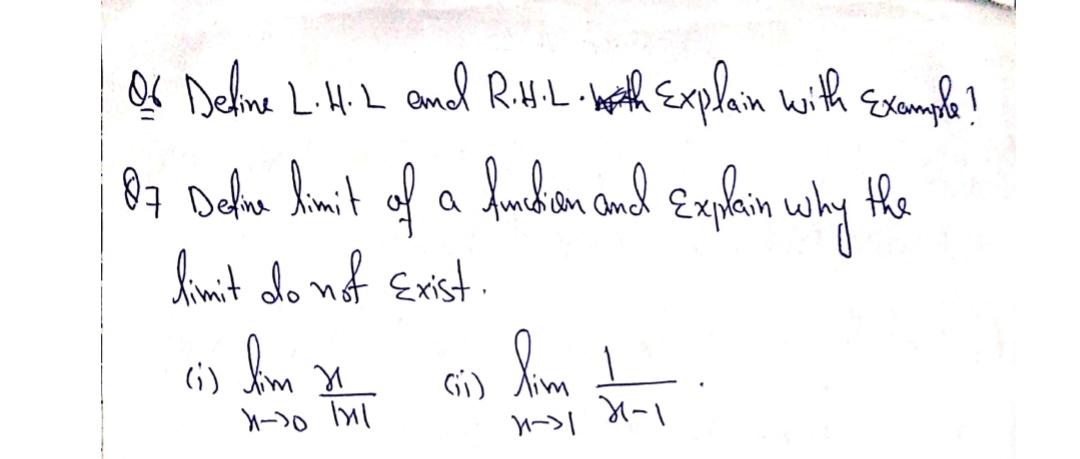 Q6 Define L.H.L and R.H.L. Explain with Example?
Q7 Define limit of a function and Explain why the
limit do not Exist.
(i) lim x/|x| (ii) lim 1/x-1 .
x->0 x->1